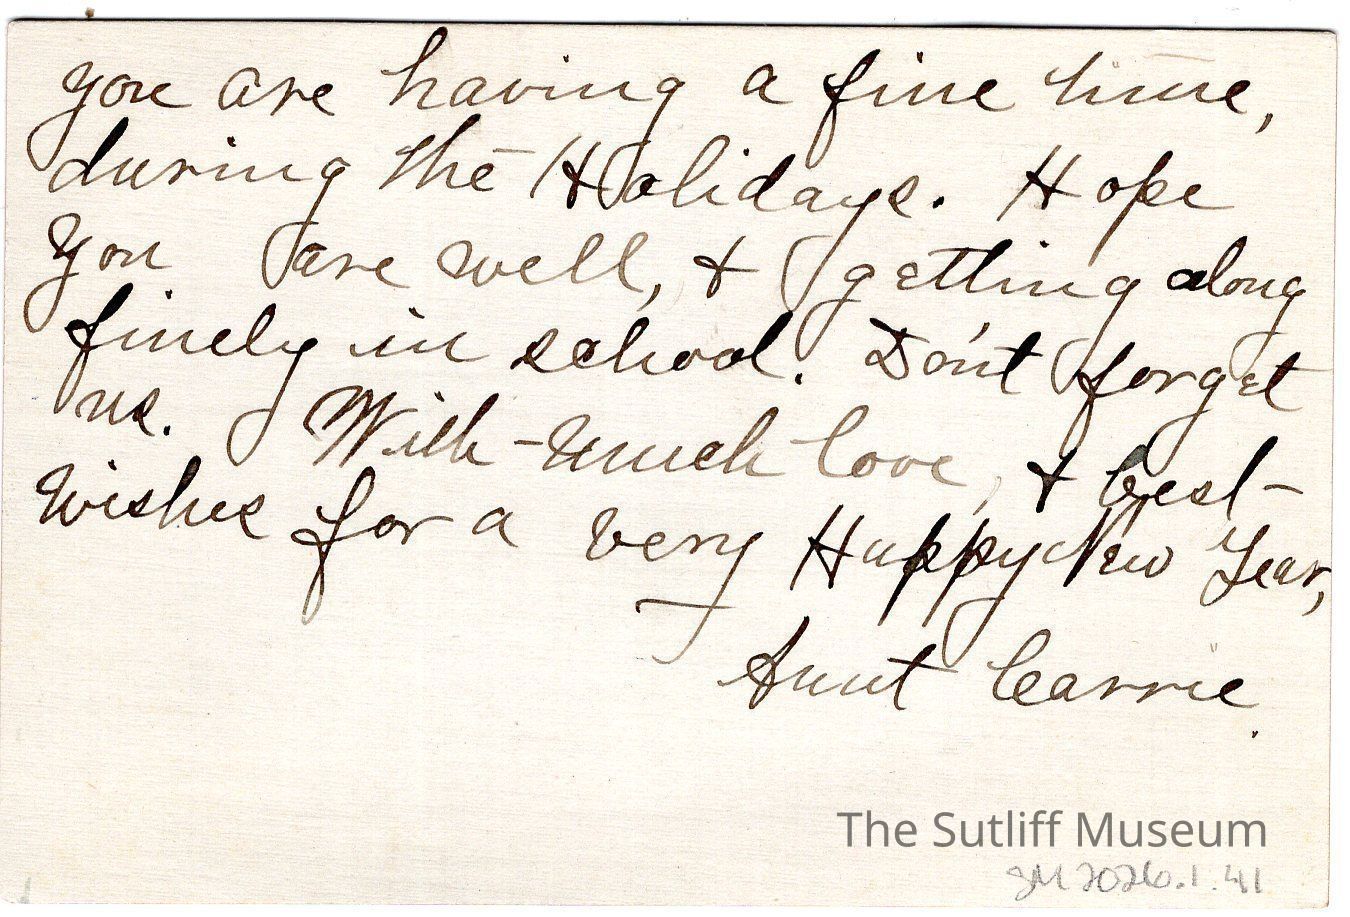 you are having a fine time,
during the Holidays. Hope
you are well, & getting along
finely in school. Don't forget
us. With much love, & best
wishes for a very Happy New Year,
Aunt Carrie.
The Sutliff Museum
SM 2026.1.41